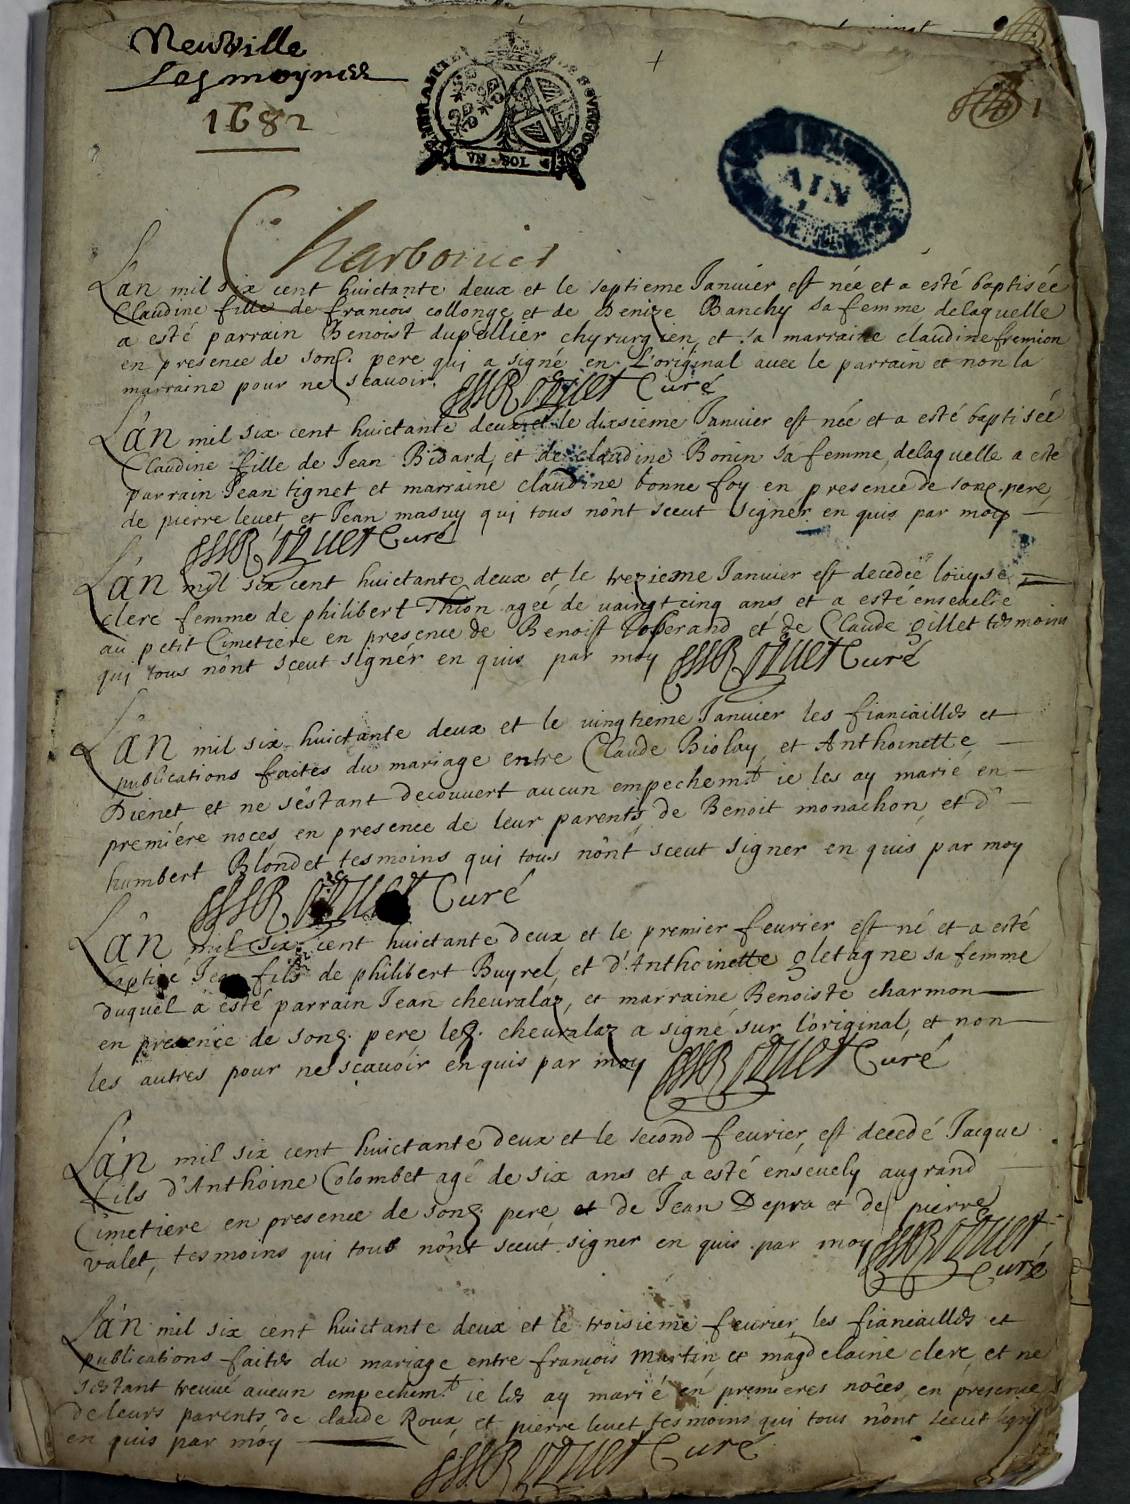 Neufville
Les moynes
1682
VN SOL
AIN
1
Charbonier
L'an mil six cent huictante deux et le septieme Januier est née et a esté baptisée
Claudine fille de francois collonge et de Denize Banchy sa femme delaquelle
a esté parrain Benoist dupellier chyrurgien et sa marraine claudine fremion
en presence de sond. pere qui a signé en L'original auec le parrain et non la
marraine pour ne scauoir. Curé
L'an mil six cent huictante deux et le dixsieme Januier est née et a esté baptisée
Claudine fille de Jean Bidard, et de claudine Bonin sa femme, delaquelle a esté
parrain Jean tignet et marraine claudine bonne foy en presence de sond. pere
de pierre leuet et Jean masuy qui tous nônt sceut signer en quis par moy
Curé
L'an mil six cent huictante deux et le trezieme Januier est decedée louyse
clerc femme de philibert Thion ageé de vaingt cinq ans et a esté enseuelie
au petit Cimetiere en presence de Benoist et de Claude gillet tesmoins
qui tous nônt sceut signér en quis par moy Curé
L'an mil six huictante deux et le vingtieme Januier les fiancailles et
publications faites du mariage entre Claude Biolay et Anthoinette
Dienet et ne sêstant decouuert aucun empechemt ie les ay marié en
premiére noces en presence de leur parents de Benoit monachon et d'
humbert Blondet tesmoins qui tous nônt sceut signer en quis par moy
Curé
L'an mil six cent huictante deux et le premier feurier est né et a esté
baptisé Jean fils de philibert Buyrel et d'Anthoinette gletagne sa femme
duquel a esté parrain Jean cheuralaz, et marraine Benoiste charmon
en presence de sond. pere led. cheuralaz a signé sur l'original, et non
les autres pour ne sçauoir enquis par moy Curé
L'an mil six cent huictante deux et le second feurier est decedé Jacque
fils d'Anthoine Colombet agé de six ans et a esté enseuely au grand
Cimetiere en presence de sond. pere et de Jean Depra et de pierre
valet, tesmoins qui tous nônt sceut signer en quis par moy
Curé
L'an mil six cent huictante deux et le troisieme feurier les fiancailles et
publications faites du mariage entre françois Martin et magdelaine clerc et ne
sestant treuué aucun empechemt ie les ay marié en premieres noces en presence
de leurs parents de claude Roux et pierre leuet tesmoins qui tous nônt sceut
en quis par moy
Curé